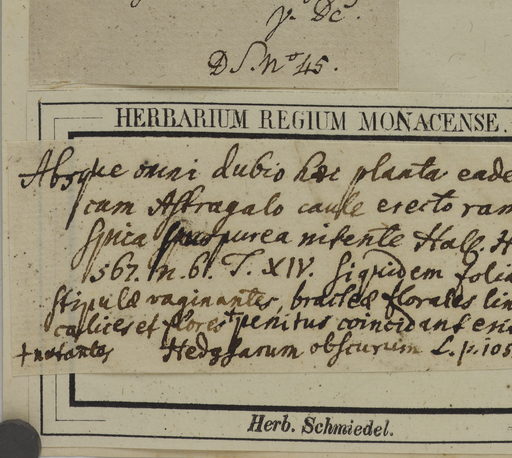 p. Dc.
D S. No 45.
HERBARIUM REGIUM MONACENSE.
Absque omni dubio hæc planta eade
cum Astragalo caule erecto ram
spica purpurea nitente Hall. H
567. n. 6. T. XIV. siquidem folia
stipulæ vaginantes, bracteæ florales lin
calices et flores + penitus coincidant
+ nutantes Hedysarum obscurum L. p. 105
Herb. Schmiedel.